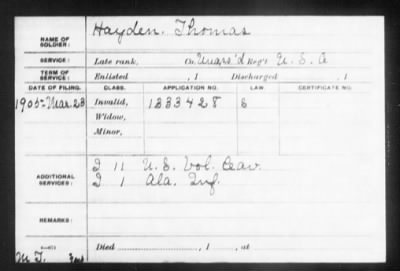 NAME OF SOLDIER: Hayden, Thomas
SERVICE: Late rank, Co. Unass'd Reg't U. S. A
TERM OF SERVICE: Enlisted , 1 Discharged , 1
DATE OF FILING. CLASS. APPLICATION NO. LAW. CERTIFICATE NO.
1905-Mar. 23 Invalid, 1333428 G
Widow,
Minor,
ADDITIONAL SERVICES: I 11 U. S. Vol. Cav.
I 1 Ala. Inf.
REMARKS:
Died , 1 , at